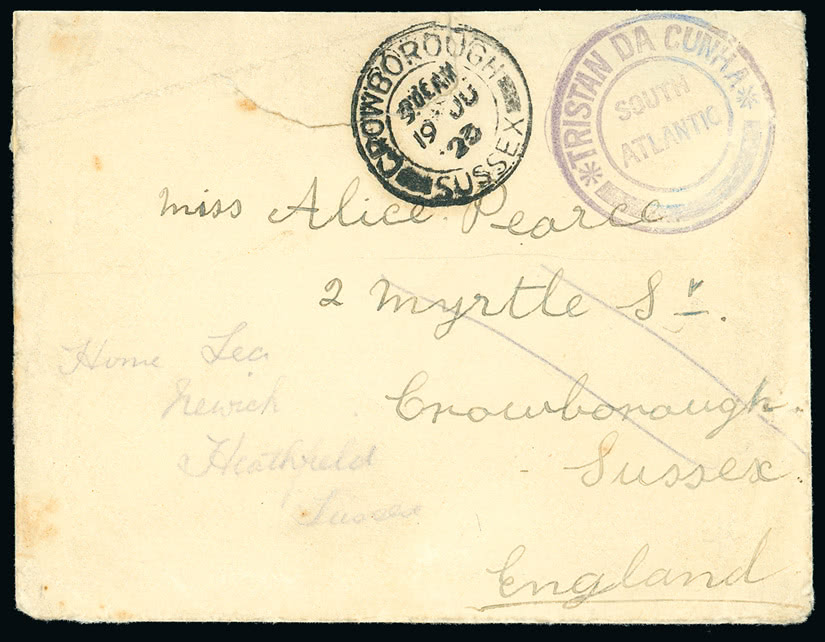 CROWBOROUGH
19 JU
23
SUSSEX
TRISTAN DA CUNHA
SOUTH
ATLANTIC
Miss Alice Pearce
2 Myrtle Sr.
Crowborough.
Sussex.
England
Home Lea
Newick
Heathfield
Sussex